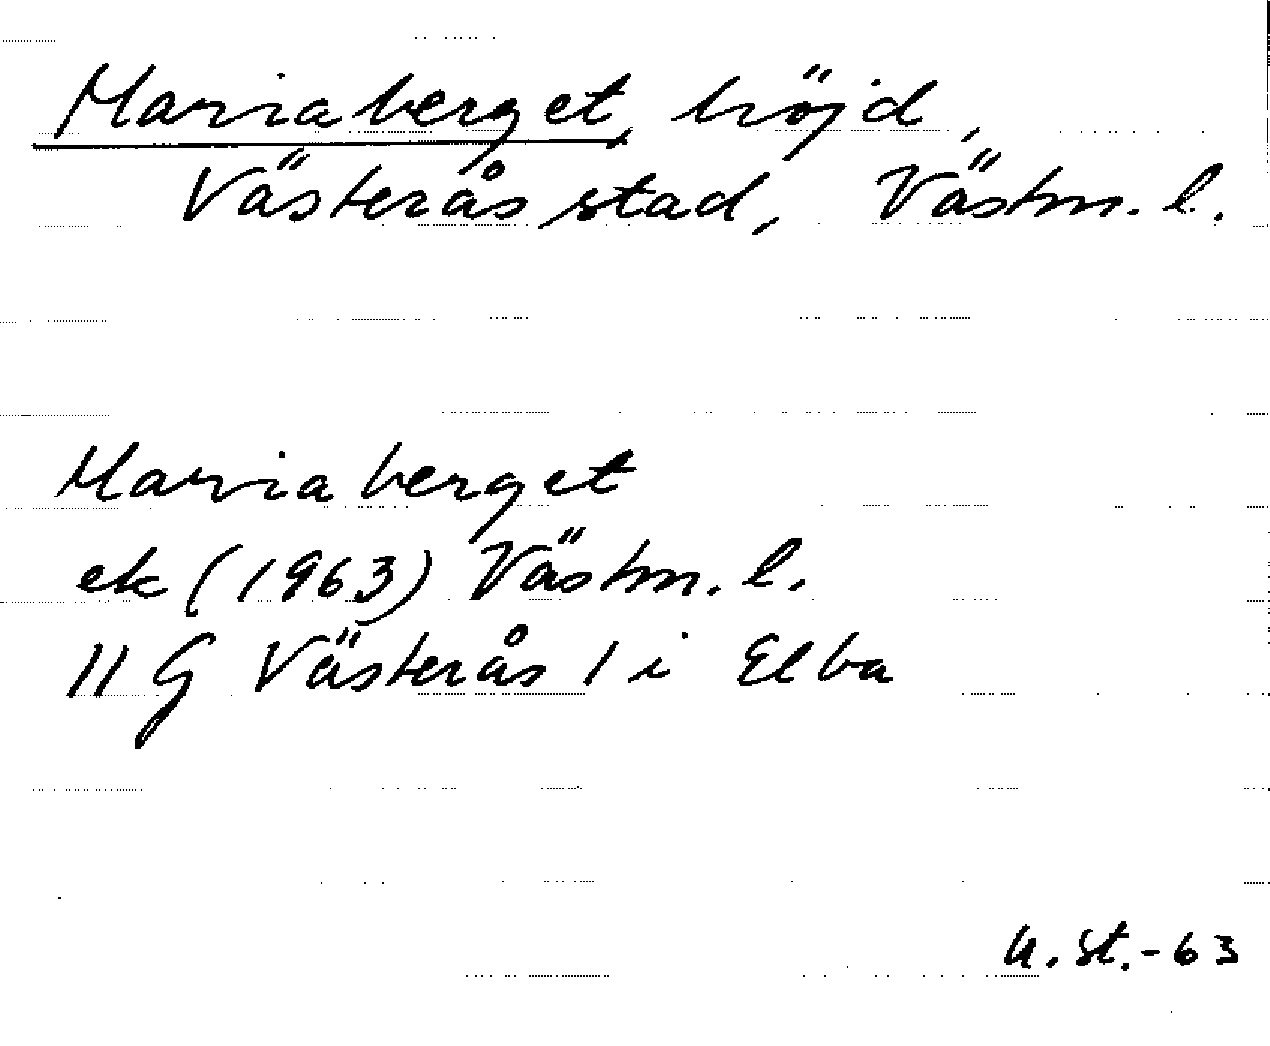 Mariaberget, höjd,
Västerås stad, Västm. l.
Mariaberget
ek (1963) Västm. l.
11 G Västerås 1 i Elba
U. St. -63